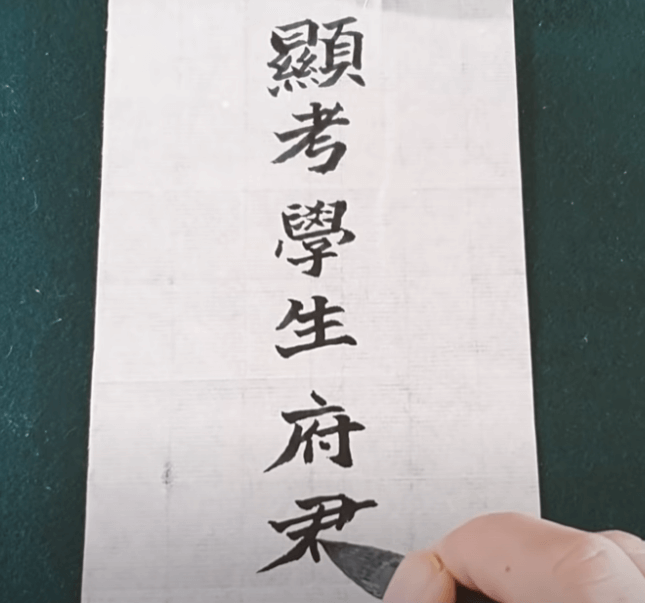 顯考學生府君